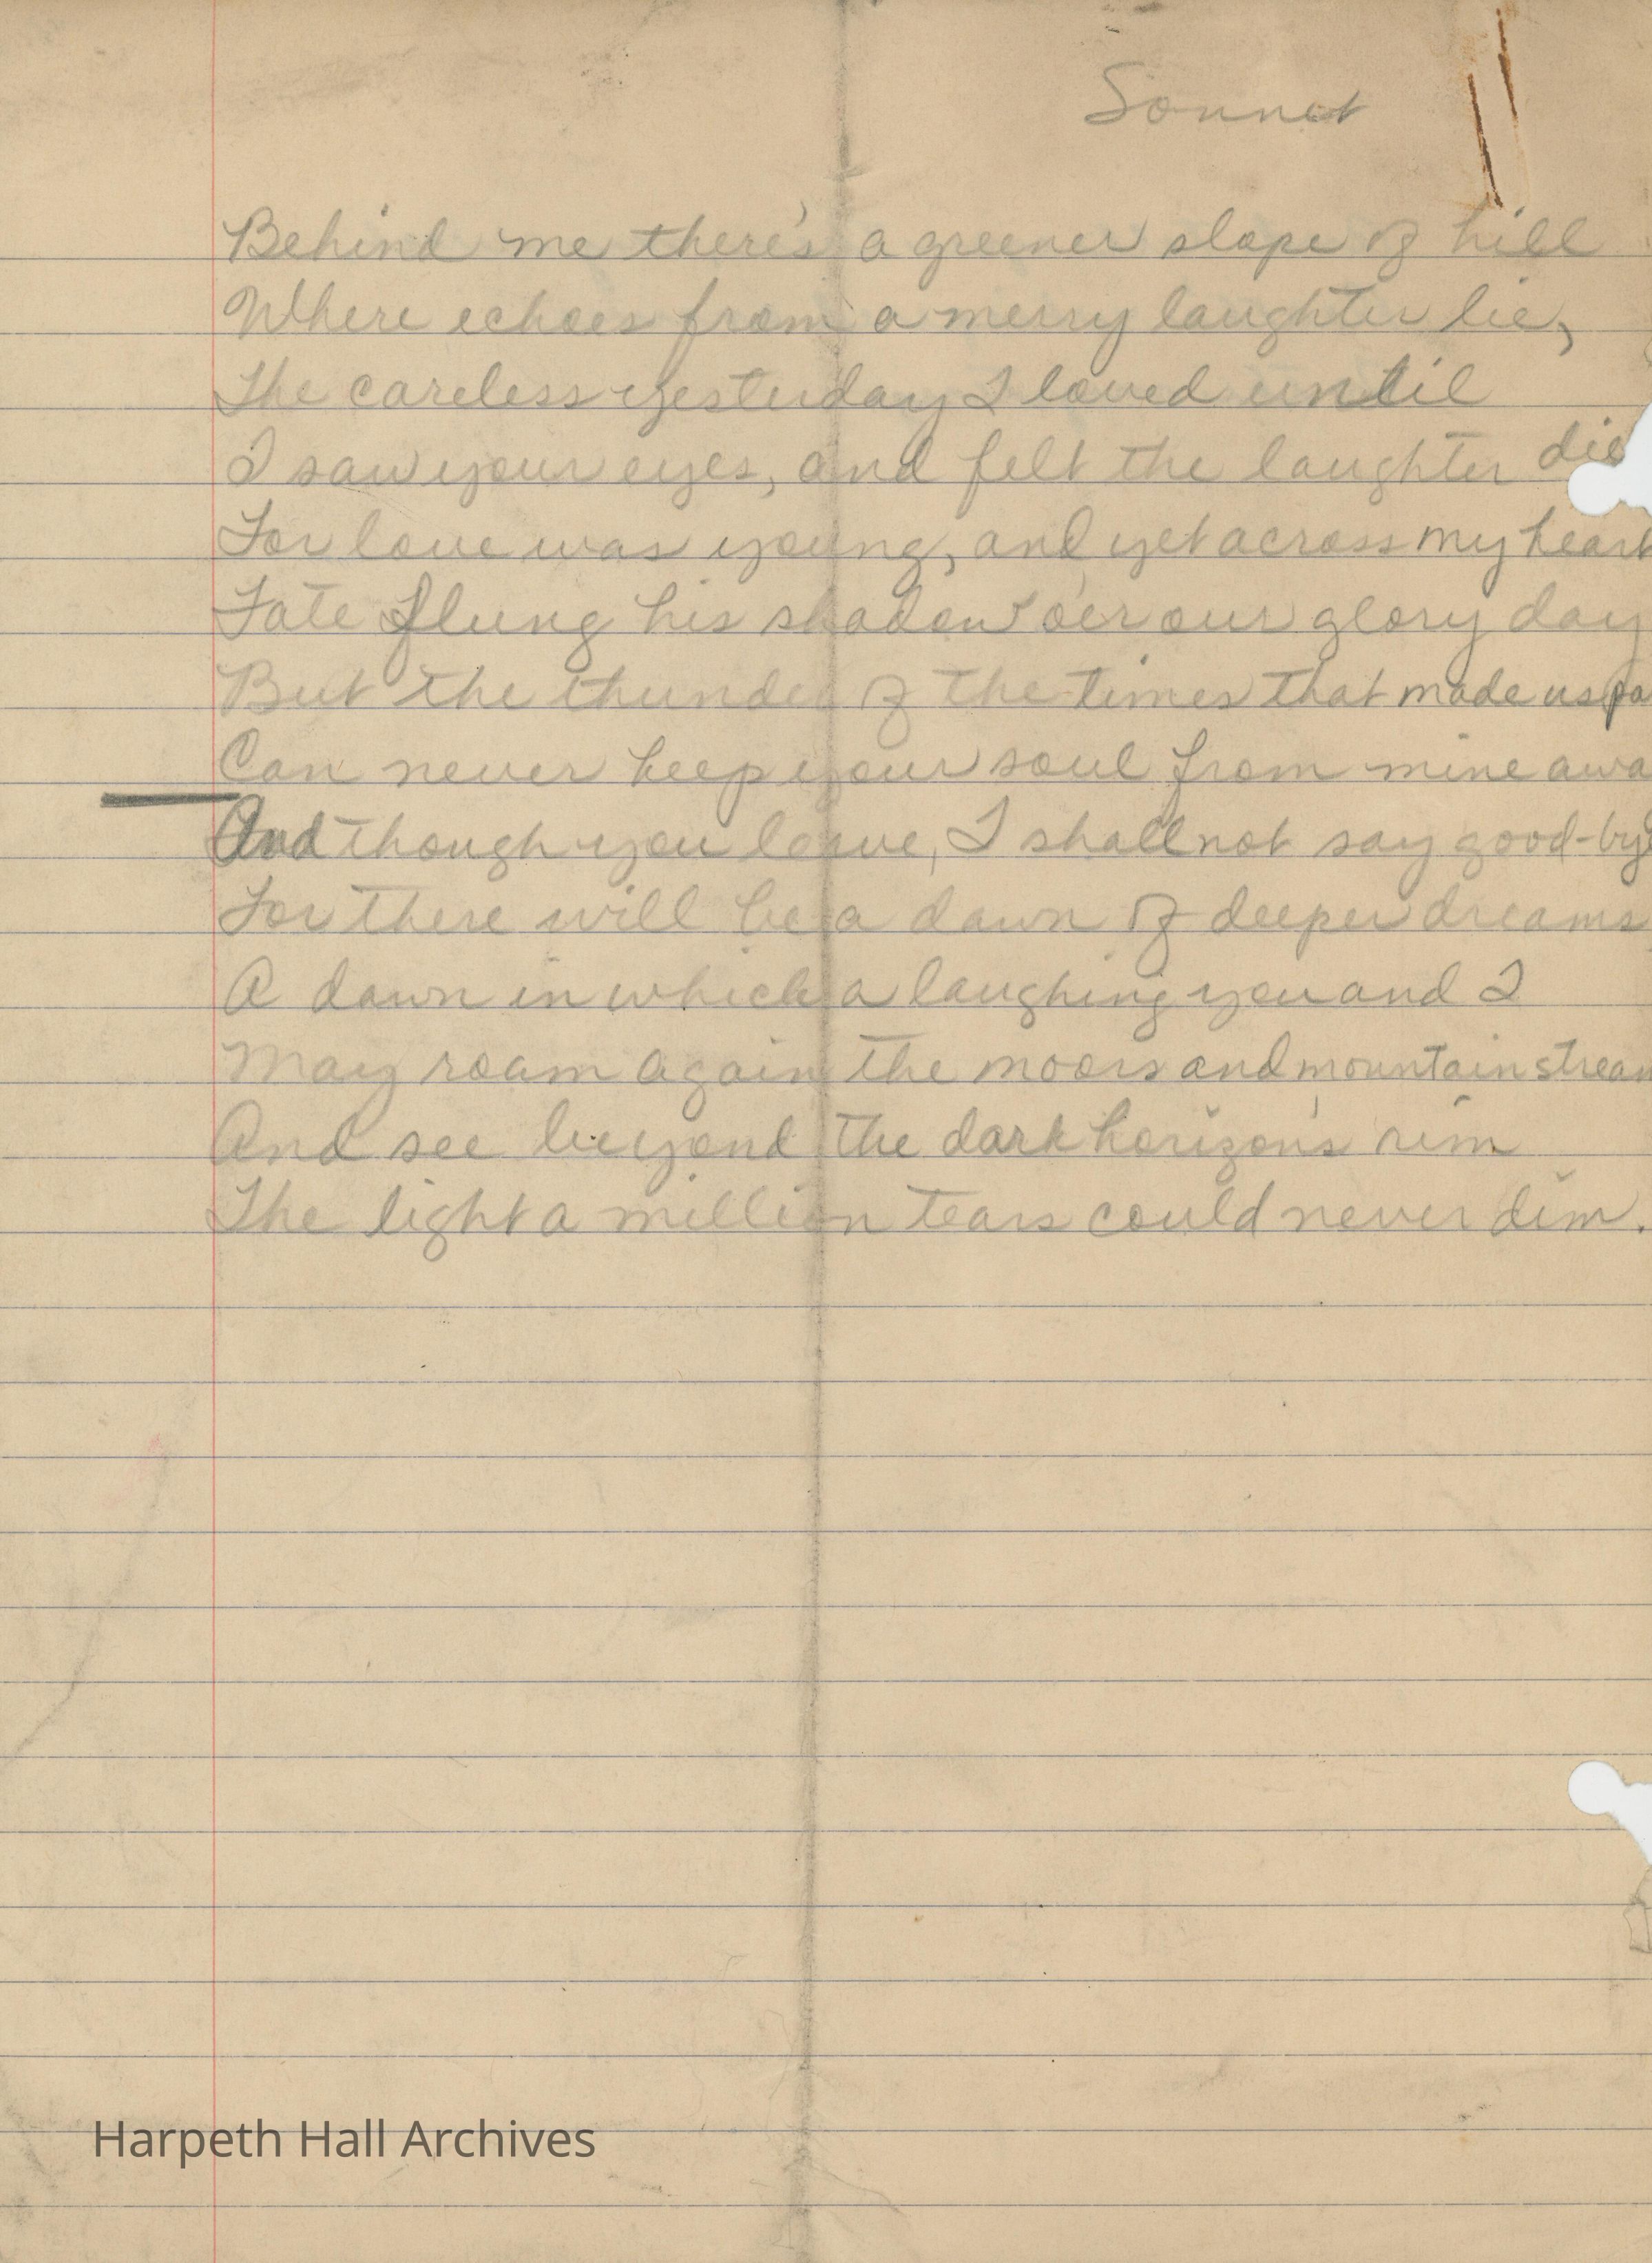 Sonnet
Behind me there's a greener slope of hill
Where echoes from a merry laughter lie,
The careless yesterday I loved until
I saw your eyes, and felt the laughter die
For love was young, and yet across my heart
Fate flung his shadow o'er our glory day
But the thunder of the times that made us pa
Can never keep your soul from mine awa
And though you leave, I shall not say good-bye
For there will be a dawn of deeper dreams
A dawn in which a laughing you and I
May roam again the moors and mountain stream
And see beyond the dark horizon's rim
The light a million tears could never dim.
Harpeth Hall Archives